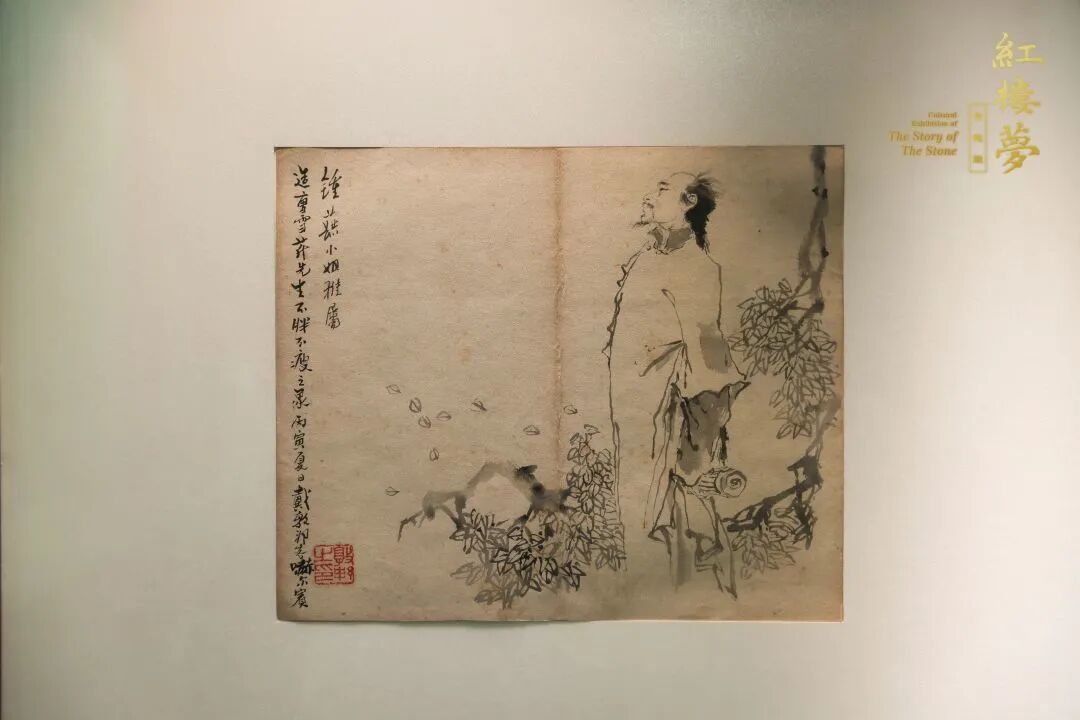 紅樓夢
Cultural
Exhibition of
The Story of
The Stone
小姐雅屬
雪芹先生不胖不瘦之象 丙寅夏日戴敦邦